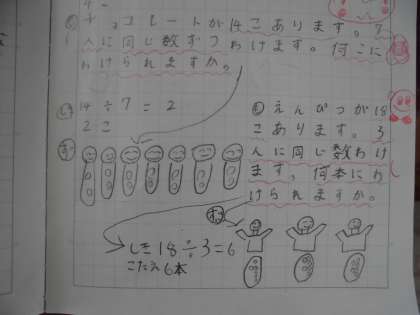 チョコレートが14こあります。7
人に同じ数ずつわけます。何こに
わけられますか。
しき 14÷7=2
2こ
ず
も えんぴつが18
こあります。3
人に同じ数わけ
ます。何本にわ
けられますか。
ず
しき18÷3=6
こたえ6本